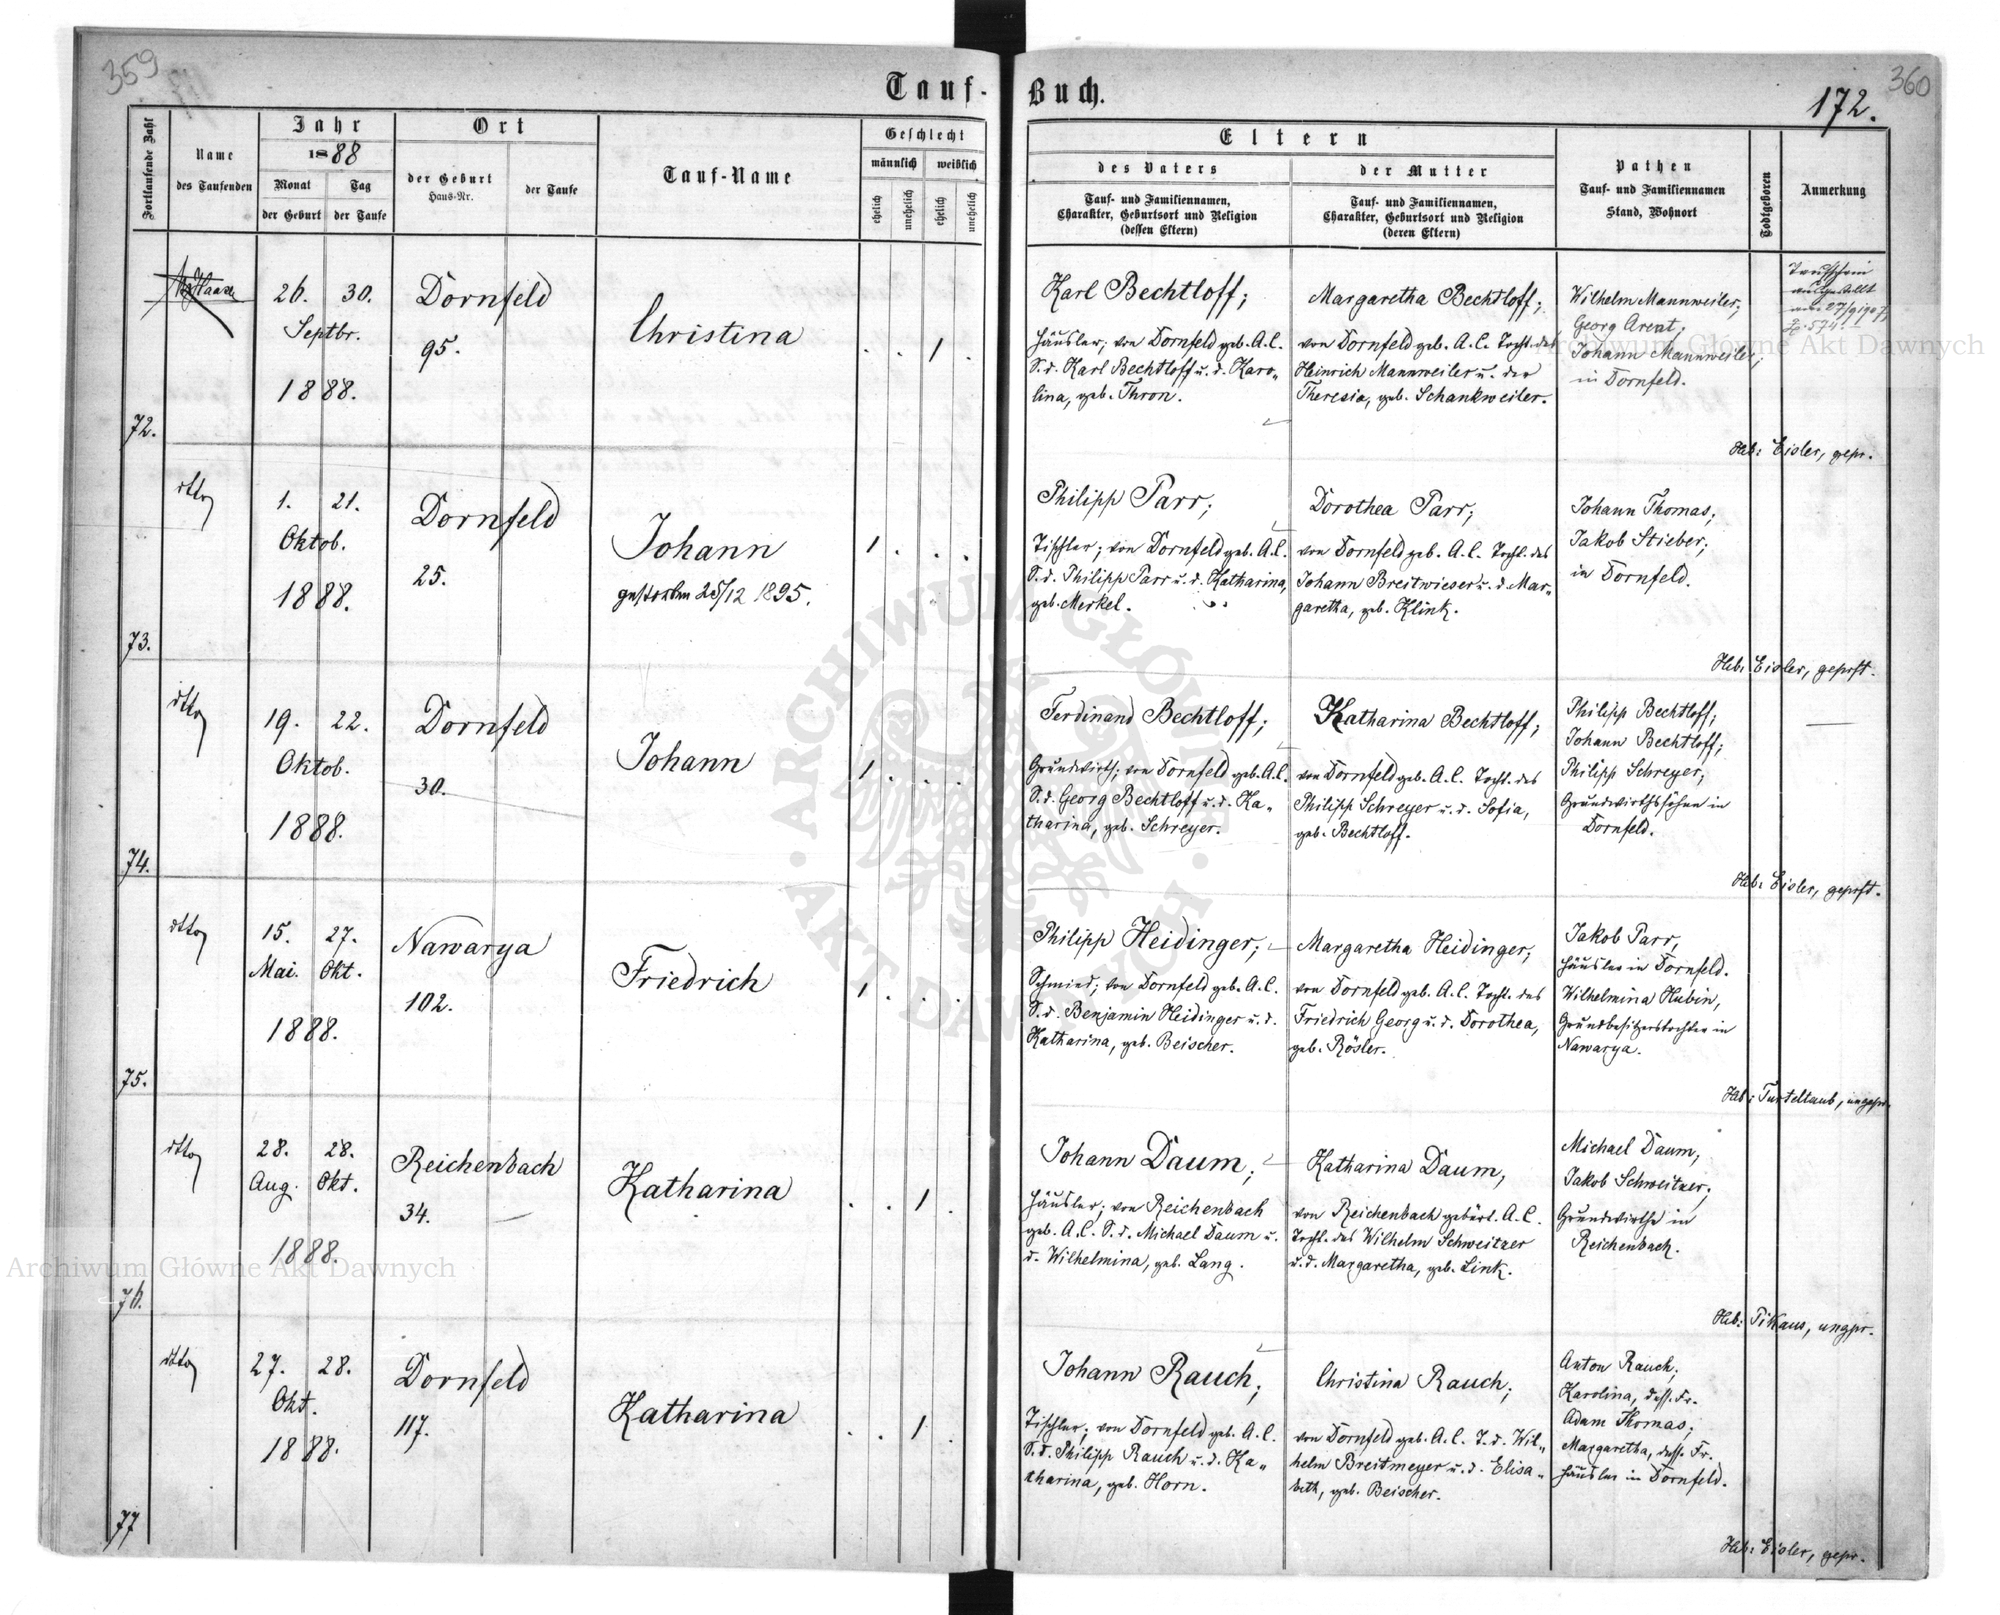 359
360
Tauf-Buch.
172.
Fortlaufende Zahl
Name
des Taufenden
Jahr
1888
Monat
Tag
der Geburt
der Taufe
Ort
der Geburt
Haus-Nr.
der Taufe
Tauf-Name
Geschlecht
männlich
weiblich
ehelich
unehelich
ehelich
unehelich
Eltern
des Vaters
Tauf- und Familiennamen,
Charakter, Geburtsort und Religion
(dessen Eltern)
der Mutter
Tauf- und Familiennamen,
Charakter, Geburtsort und Religion
(deren Eltern)
Pathen
Tauf- und Familiennamen
Stand, Wohnort
Todtgeboren
Anmerkung
72.
26. 30.
Septbr.
1888.
Dornfeld
95.
Christina
. . 1 .
Karl Bechtloff;
Häusler; von Dornfeld geb. A.C.
S. d. Karl Bechtloff u. d. Karo-
lina, geb. Thron.
Margaretha Bechtloff;
von Dornfeld geb. A.C. Tocht. des
Heinrich Mannweiler u. der
Theresia, geb. Schankweiler.
Wilhelm Mannweiler;
Georg Arent;
Johann Mannweiler;
in Dornfeld.
Taufschein
ausgestellt
am 27/9 1907,
Z. 574.
Heb: Eisler, gepr.
73.
dtto
1. 21.
Oktob.
1888.
Dornfeld
25.
Johann
gestorben 25/12 1895.
1 . . .
Philipp Parr;
Tischler; von Dornfeld geb. A.C.
S. d. Philipp Parr u. d. Katharina,
geb. Merkel.
Dorothea Parr;
von Dornfeld geb. A.C. Tocht. des
Johann Breitwieser u. d. Mar-
garetha, geb. Klink.
Johann Thomas;
Jakob Stieber;
in Dornfeld.
Heb: Eisler, geprft.
74.
dtto
19. 22.
Oktob.
1888.
Dornfeld
30.
Johann
1 . . .
Ferdinand Bechtloff;
Grundwirth; von Dornfeld geb. A.C.
S. d. Georg Bechtloff u. d. Ka-
tharina, geb. Schreyer.
Katharina Bechtloff;
von Dornfeld geb. A.C. Tocht. des
Philipp Schreyer u. d. Sofia,
geb. Bechtloff.
Philipp Bechtloff;
Johann Bechtloff;
Philipp Schreyer;
Grundwirthssöhne in
Dornfeld.
Heb: Eisler, geprft.
75.
dtto
15. 27.
Mai. Okt.
1888.
Nawarya
102.
Friedrich
1 . . .
Philipp Heidinger;
Schmied; von Dornfeld geb. A.C.
S. d. Benjamin Heidinger u. d.
Katharina, geb. Beischer.
Margaretha Heidinger;
von Dornfeld geb. A.C. Tocht. des
Friedrich Georg u. d. Dorothea,
geb. Rösler.
Jakob Parr,
Häusler in Dornfeld.
Wilhelmina Hubin,
Grundbesitzerstochter in
Nawarya.
Heb: Turteltaub, ungepr.
76.
dtto
28. 28.
Aug. Okt.
1888.
Reichenbach
34.
Katharina
. . 1 .
Johann Daum;
Häusler; von Reichenbach
geb. A.C. S. d. Michael Daum u.
d. Wilhelmina, geb. Lang.
Katharina Daum,
von Reichenbach gebürt. A.C.
Tocht. des Wilhelm Schweitzer
u. d. Margaretha, geb. Link.
Michael Daum,
Jakob Schweitzer;
Grundwirthe in
Reichenbach.
Heb: Pikaus, ungpr.
77
dtto
27. 28.
Okt.
1888.
Dornfeld
117.
Katharina
. . 1 .
Johann Rauch;
Tischler; von Dornfeld geb. A.C.
S. d. Philipp Rauch u. d. Ka-
tharina, geb. Horn.
Christina Rauch;
von Dornfeld geb. A.C. T. d. Wil-
helm Breitmeyer u. d. Elisa-
beth, geb. Beischer.
Anton Rauch;
Karolina, dess. Fr.
Adam Thomas;
Margaretha, dess. Fr.
Häusler in Dornfeld.
Heb: Eisler, gepr.
Archiwum Główne Akt Dawnych
Archiwum Główne Akt Dawnych
ARCHIWUM GŁÓWNE
AKT DAWNYCH